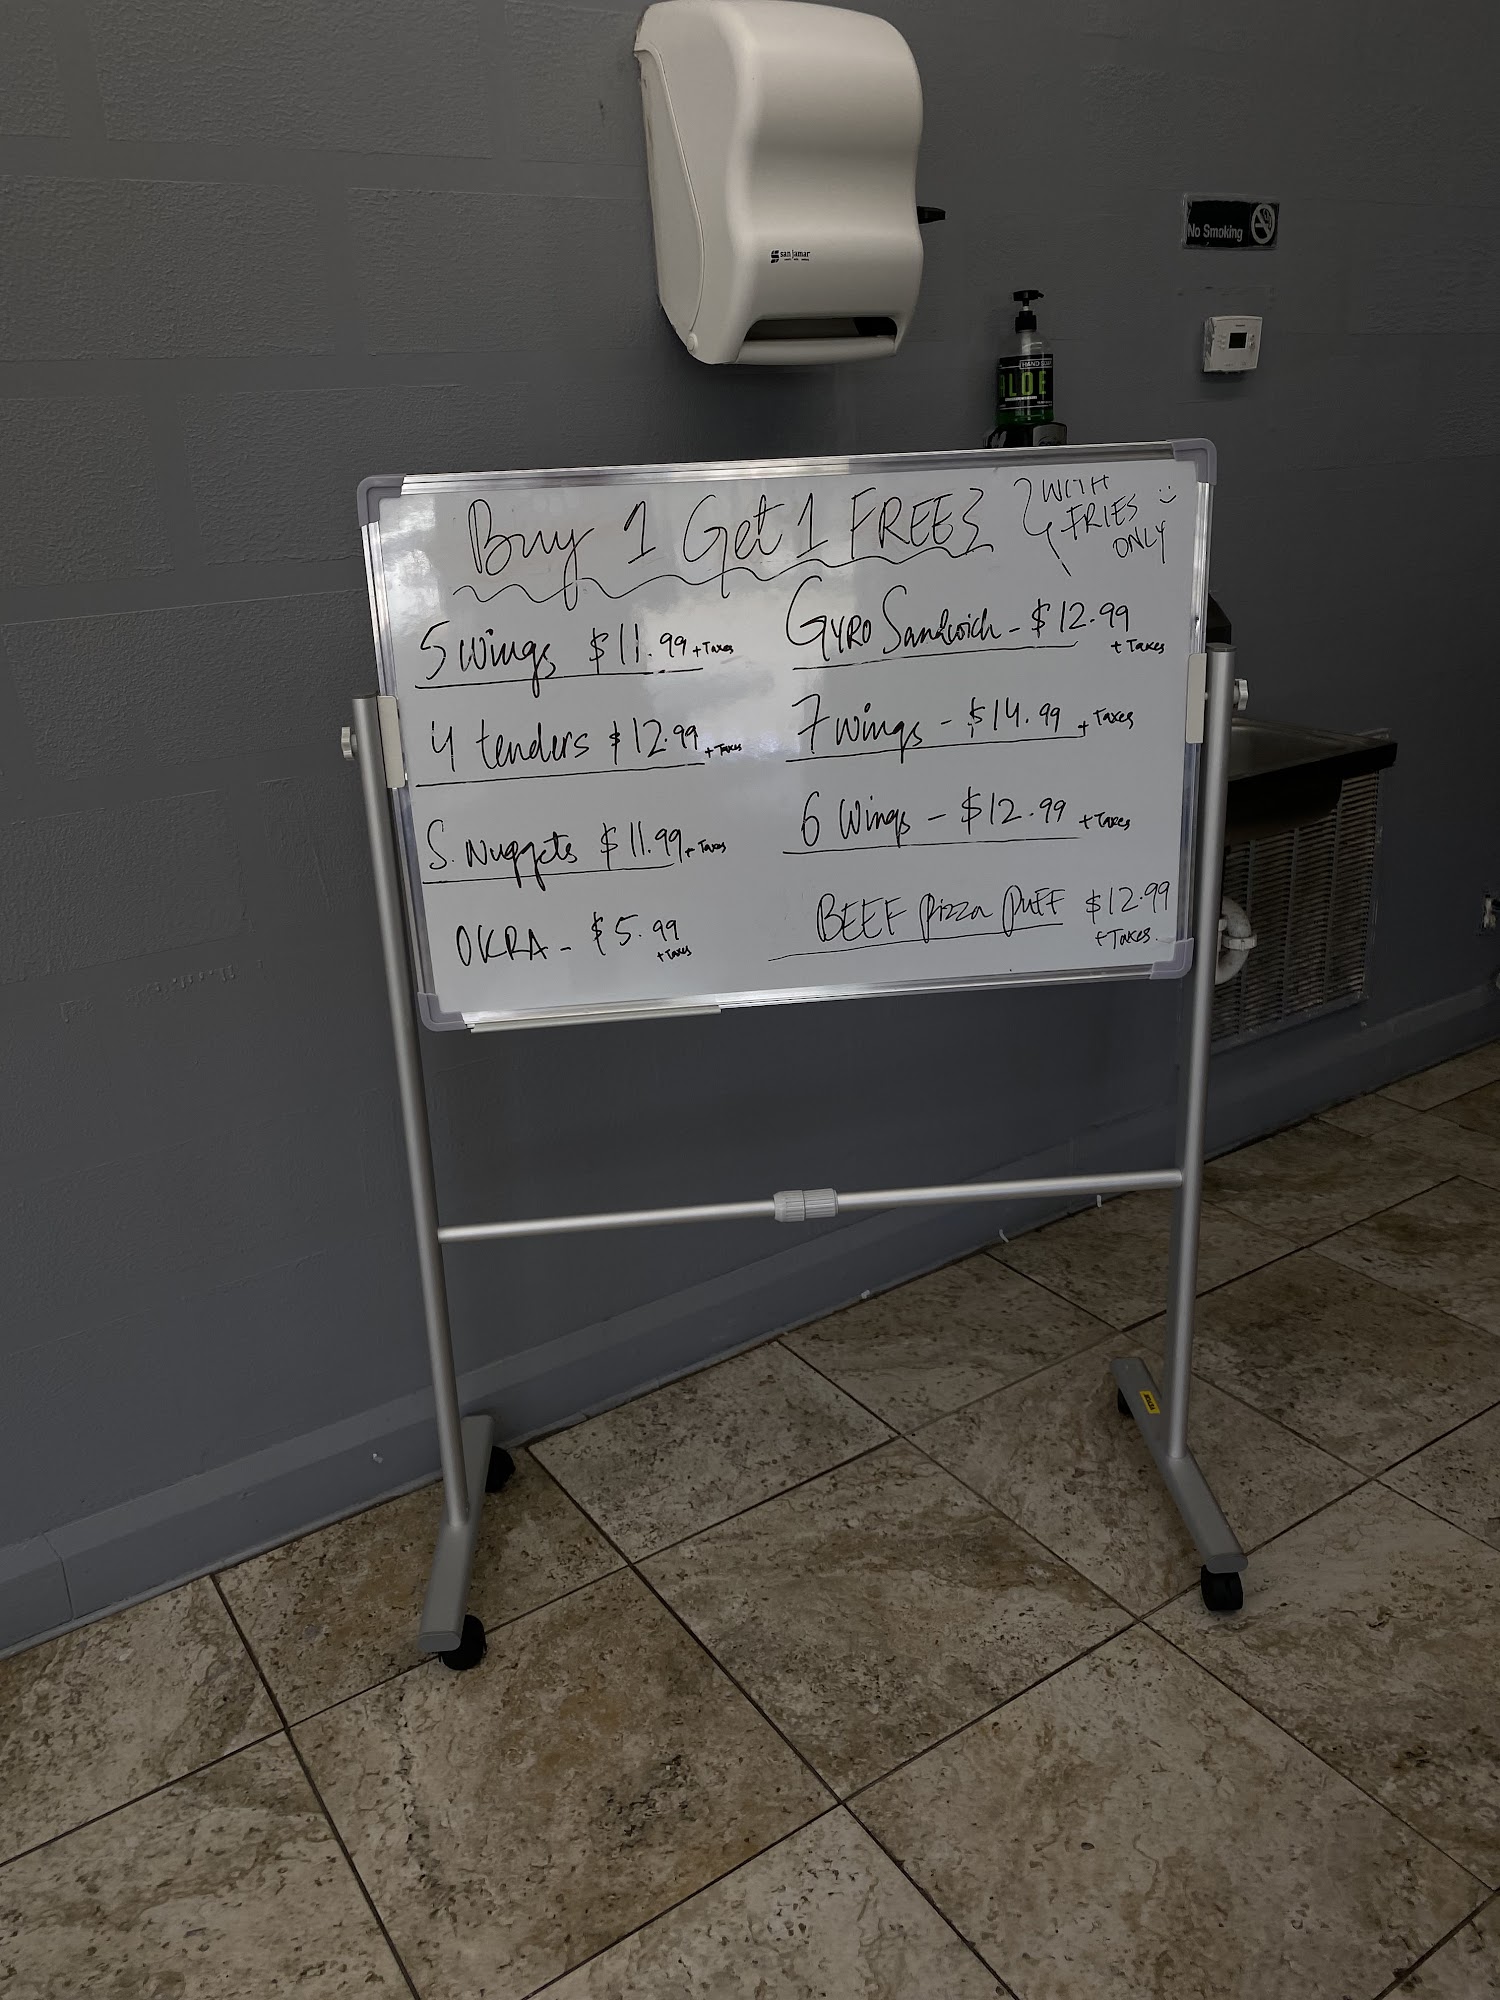 san jamar
No Smoking
HAND SOAP
ALOE
Buy 1 Get 1 FREE
WITH
FRIES
ONLY
5 wings $11.99 + Taxes
4 tenders $12.99 + Taxes
S. Nuggets $11.99 + Taxes
OKRA - $5.99
+ Taxes
Gyro Sandwich - $12.99
+ Taxes
7 wings - $14.99 + Taxes
6 Wings - $12.99 + Taxes
BEEF Pizza Puff $12.99
+ Taxes